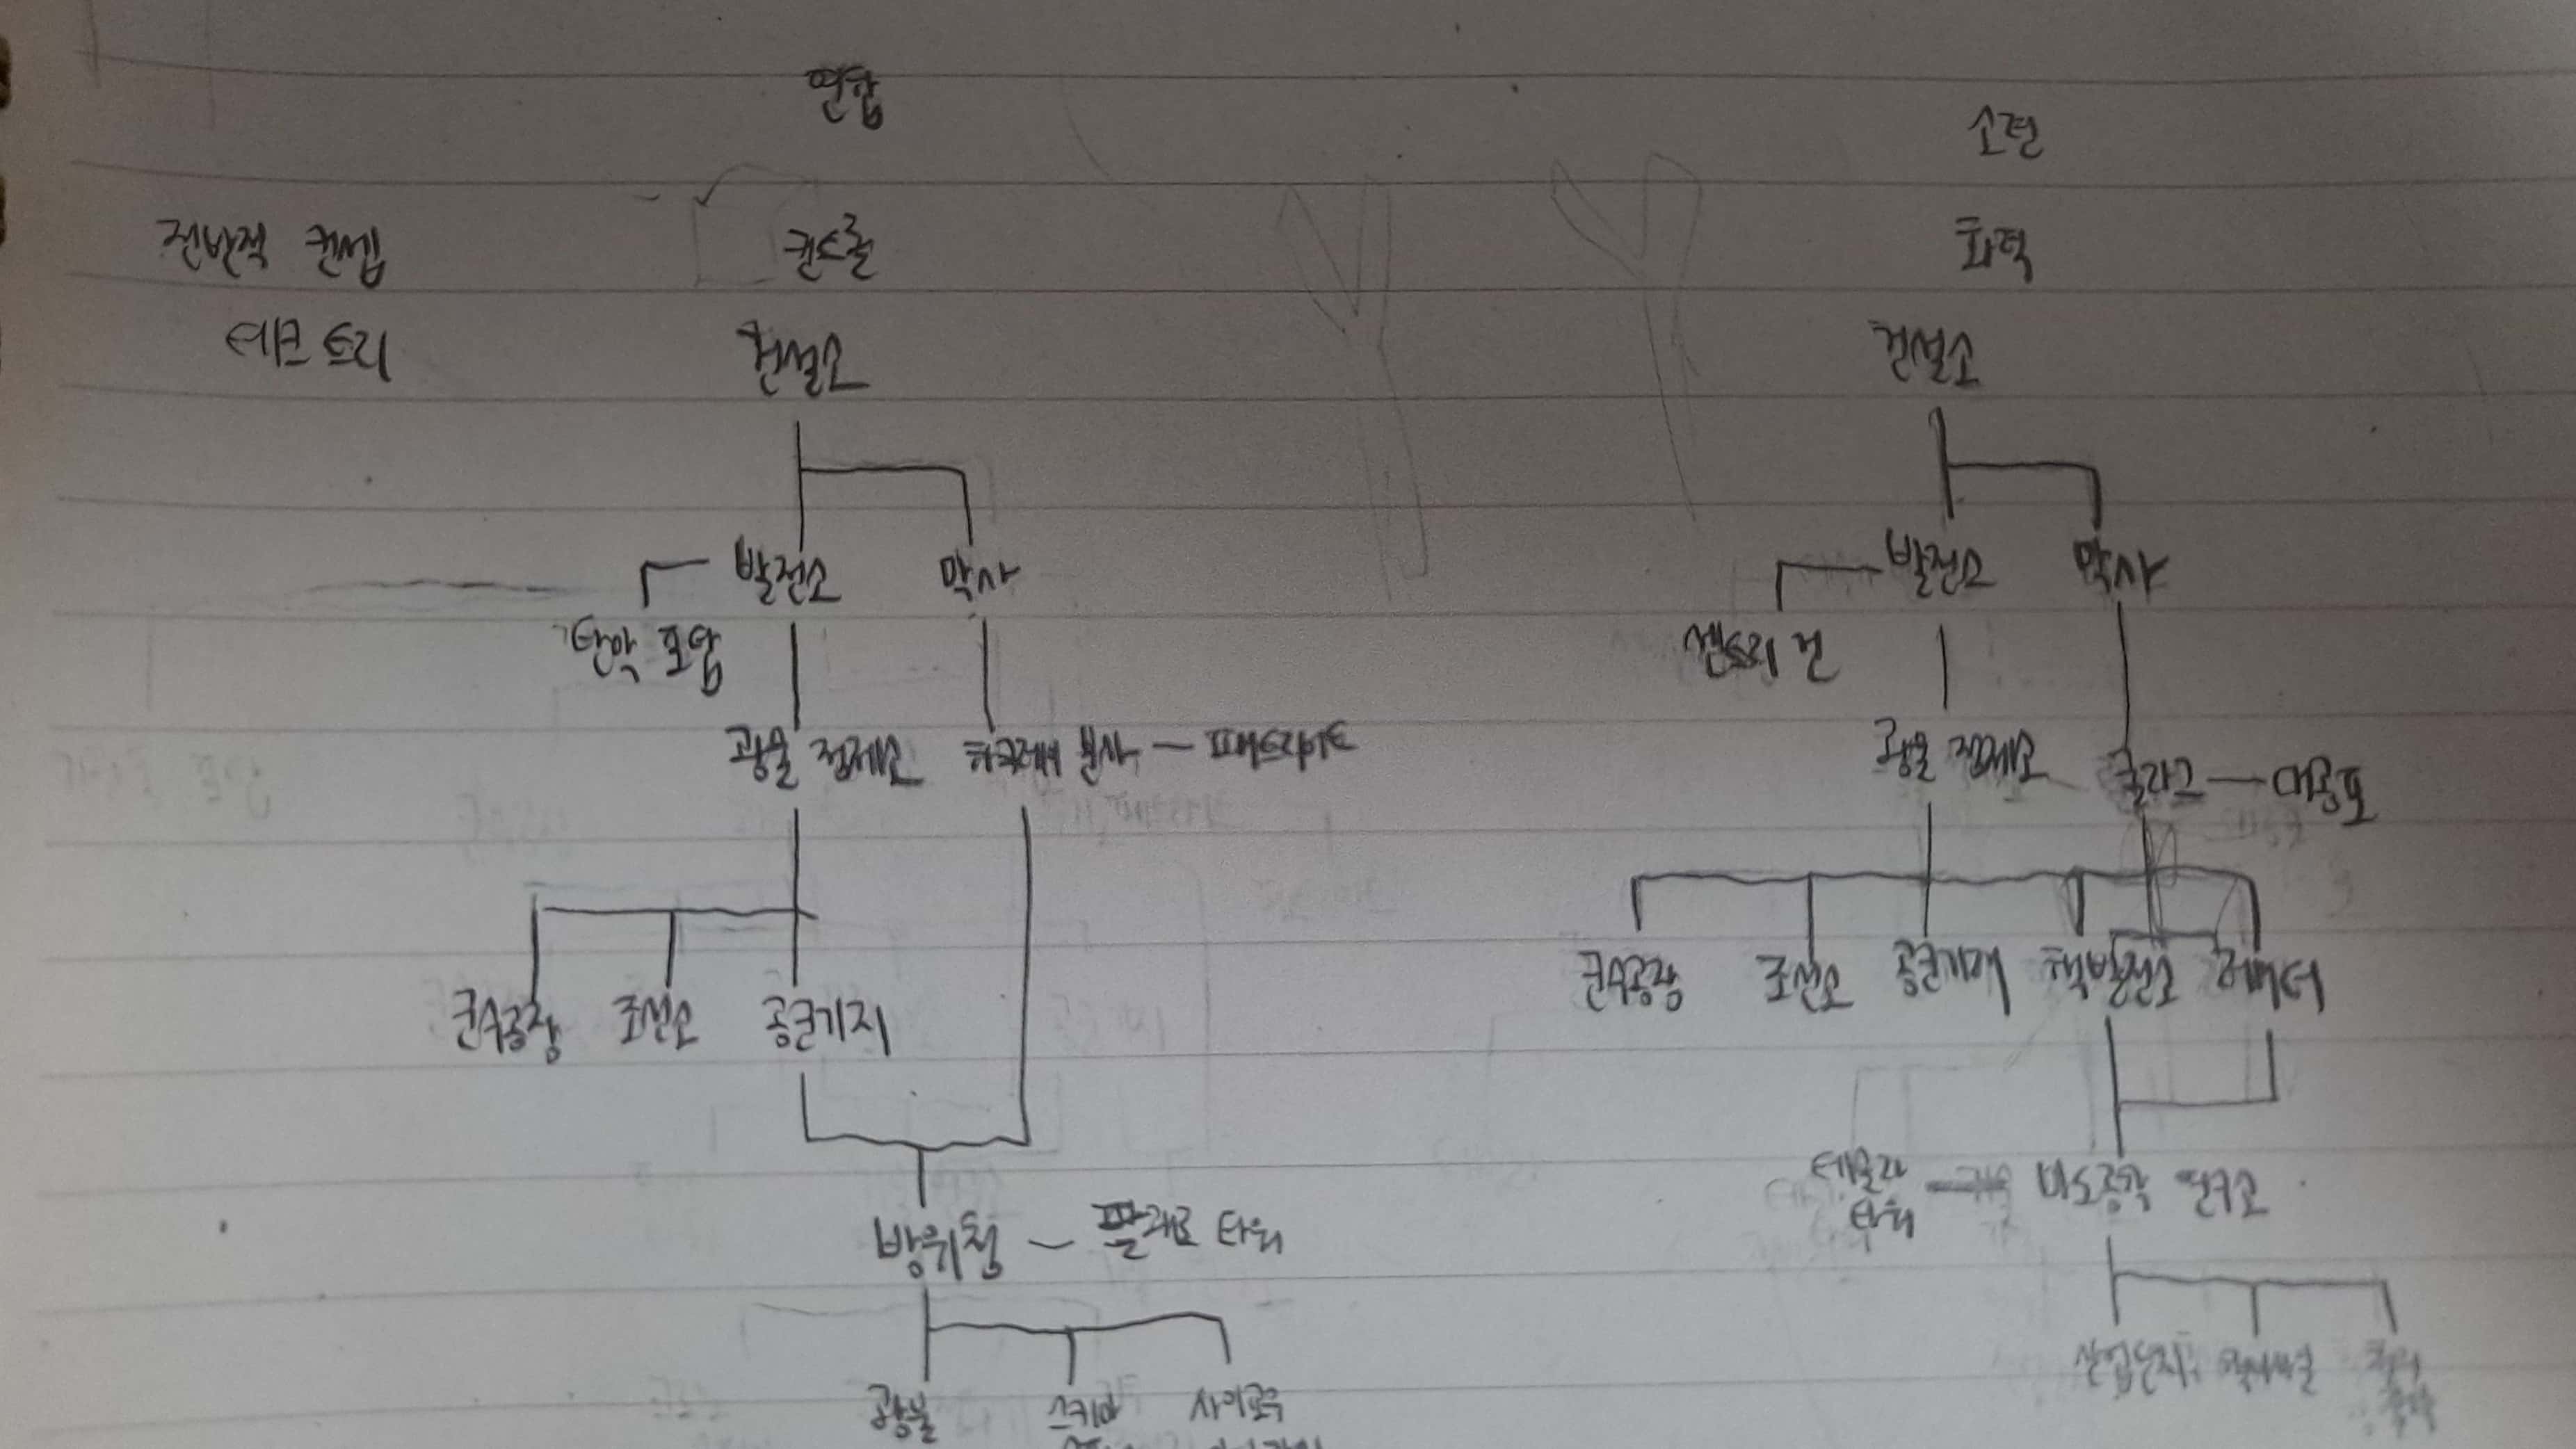 연합
소련
전반적 컨셉 컨트롤 화력
테크 트리 건설소 건설소
발전소 막사 발전소 막사
탄약 포탑 센트리 건
광물 정제소 본부 — 패트리어트 광물 정제소 — 대공포
군수공장 조선소 공군기지 군수공장 조선소 핵발전소 레이더
테슬라 타워 — 연구소
방위청 — 타워
산업단지
스카이 사이로우